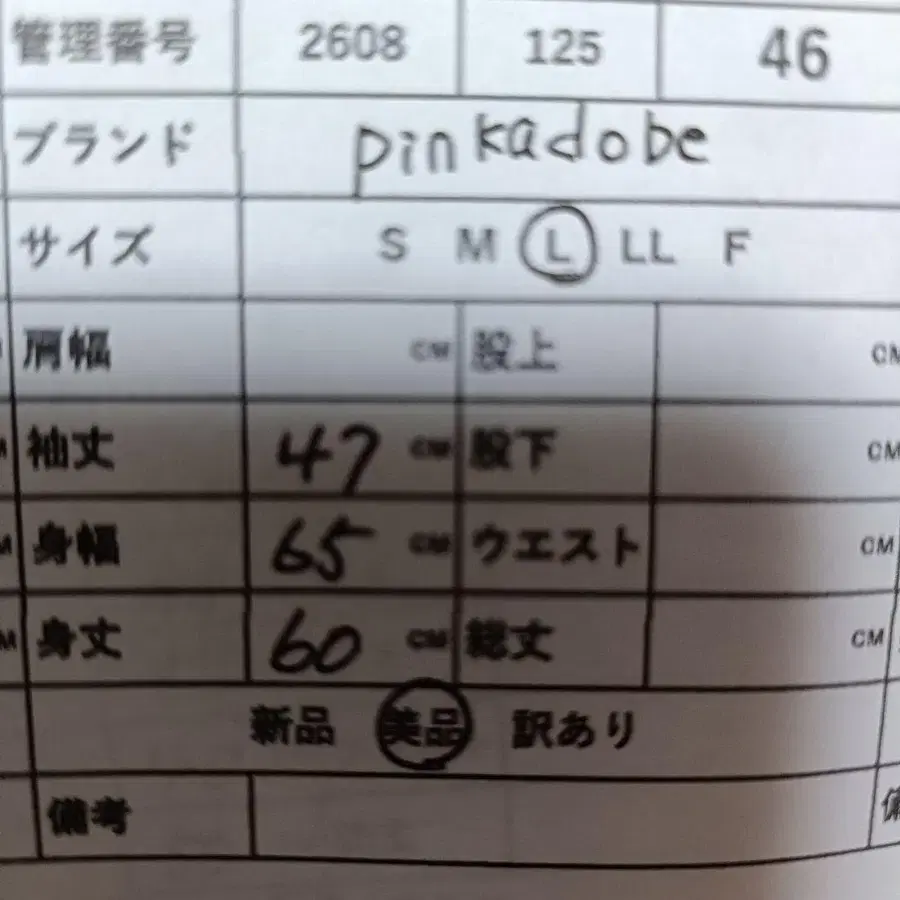 管理番号 2608 125 46
ブランド pinkadobe
サイズ S M L LL F
肩幅 CM 股上 CM
袖丈 47 CM 股下 CM
身幅 65 CM ウエスト CM
身丈 60 CM 総丈 CM
新品 美品 訳あり
備考